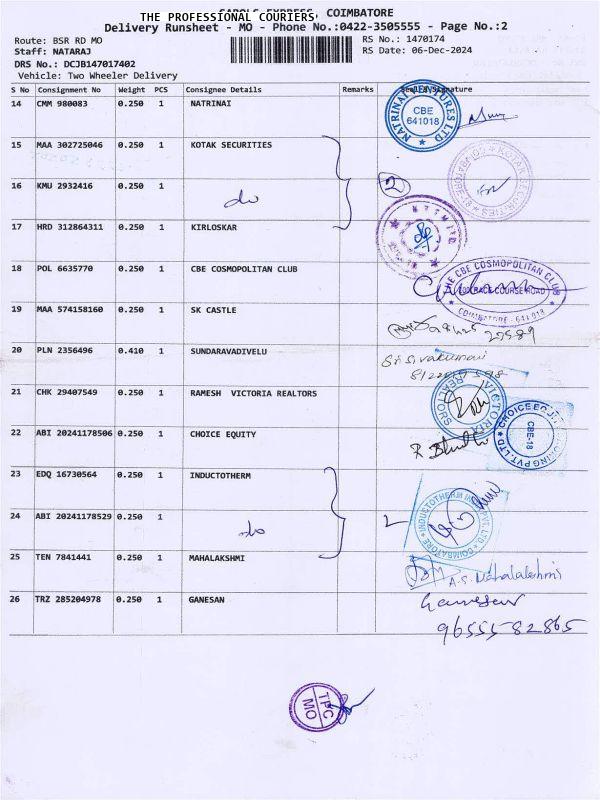 THE PROFESSIONAL COURIERS
COIMBATORE
Delivery Runsheet - MO - Phone No.:0422-3505555 - Page No.:2
Route: BSR RD MO
RS No.: 1470174
Staff: NATARAJ
RS Date: 06-Dec-2024
DRS No.: DCJB147017402
Vehicle: Two Wheeler Delivery
S No Consignment No Weight PCS Consignee Details Remarks Seal & Signature
14 CMM 980083 0.250 1 NATRINAI
NATRINAI VENTURES LTD
CBE
641018
15 MAA 302725046 0.250 1 KOTAK SECURITIES
16 KMU 2932416 0.250 1 do
2
17 HRD 312864311 0.250 1 KIRLOSKAR
18 POL 6635770 0.250 1 CBE COSMOPOLITAN CLUB
THE CBE COSMOPOLITAN CLUB
RACE COURSE ROAD
COIMBATORE - 641 018
19 MAA 574158160 0.250 1 SK CASTLE
20 PLN 2356496 0.410 1 SUNDARAVADIVELU
21 CHK 29407549 0.250 1 RAMESH VICTORIA REALTORS
VICTORIA REALTORS
22 ABI 20241178506 0.250 1 CHOICE EQUITY
CBE-18
23 EDQ 16730564 0.250 1 INDUCTOTHERM
24 ABI 20241178529 0.250 1 do
2
25 TEN 7841441 0.250 1 MAHALAKSHMI
A.S. Mahalakshmi
26 TRZ 285204978 0.250 1 GANESAN
Ganesan
9655582865
TPC
MO